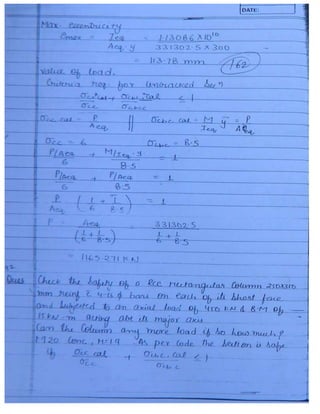 DATE:
Max. eccentricity
emax = Ieq = 1.13086 X 10¹⁰
Aeq. y 331302.5 X 300
= 113.78 mm
162
Value of load.
Criteria req. for uncracked Secⁿ
σcc cal + σcbc cal ≤ 1
σcc σcbc
σcc cal = P || σcbc cal = M y = P
Aeq Ieq Aeq
σcc = 6 σcbc = 8.5
P/Aeq + M/Ieq . y = 1
6 8.5
P/Aeq + P/Aeq = 1
6 8.5
P ( 1 + 1 ) = 1
Aeq 6 8.5
P = Aeq = 331302.5
( 1 + 1 ) 1 + 1
6 8.5 6 8.5
= 1165.271 KN
Ques Check the Safety of a Rcc rectangular Column 250X500
mm reinf c̄ 4 bars on each of its Short face
and Subjected to an axial load of 450 KN & B.M of
15 KN-m acting abt its major axis
Can the Column any more load if so how much?
M20 Conc, M=19. As per Code the Section is Safe
if σcc cal + σcbc cal ≤ 1
σcc σcbc